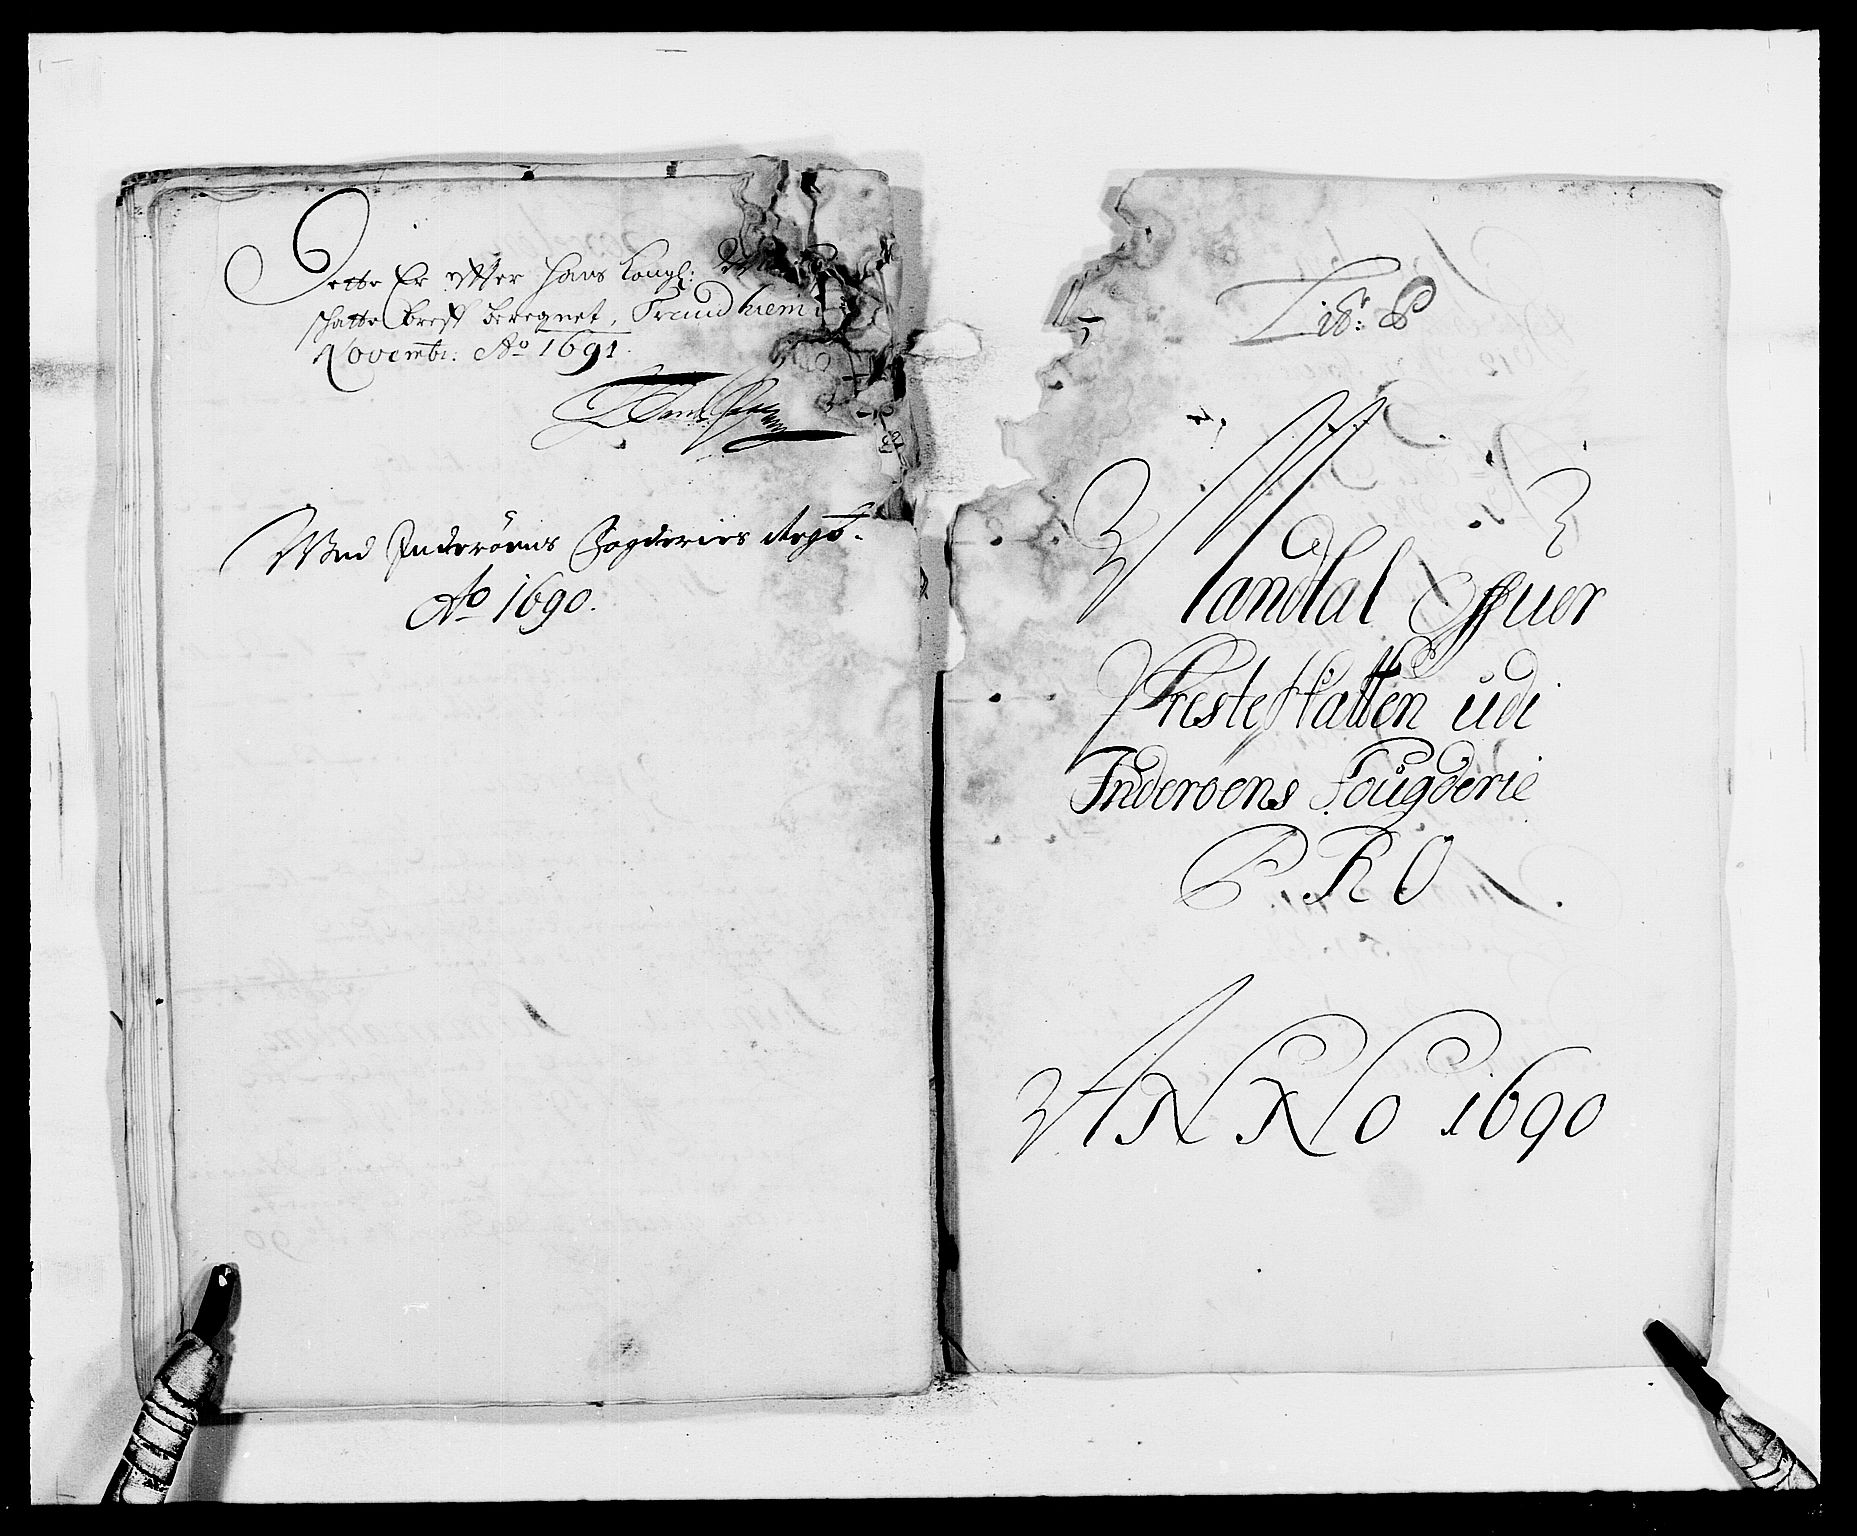 Dette Er efter Hans Kongl:
schatte breff beregnet, Trundhiem
Novembr: Ao 1691.
Wed Inderöens Fogderies Regb.
Ao 1690.
Litr:
Mandtal Offuer
Presteskatten udi
Inderoens Fougderie
PRO
ANNO 1690